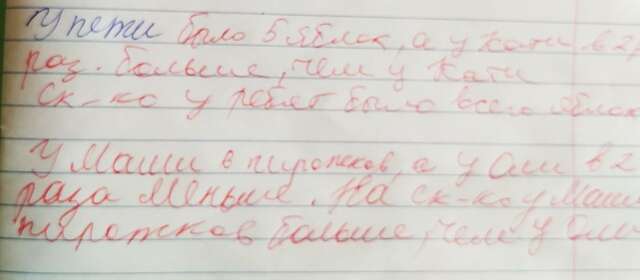 У пети было 5 яблок, а у Кати в 2
раз. больше, чем у Кати
Ск-ко у ребят было всего яблок
У Маши 6 пирожков, а у Оли в 2
раза меньше. На ск-ко у Маши
пирожков больше, чем у Оли